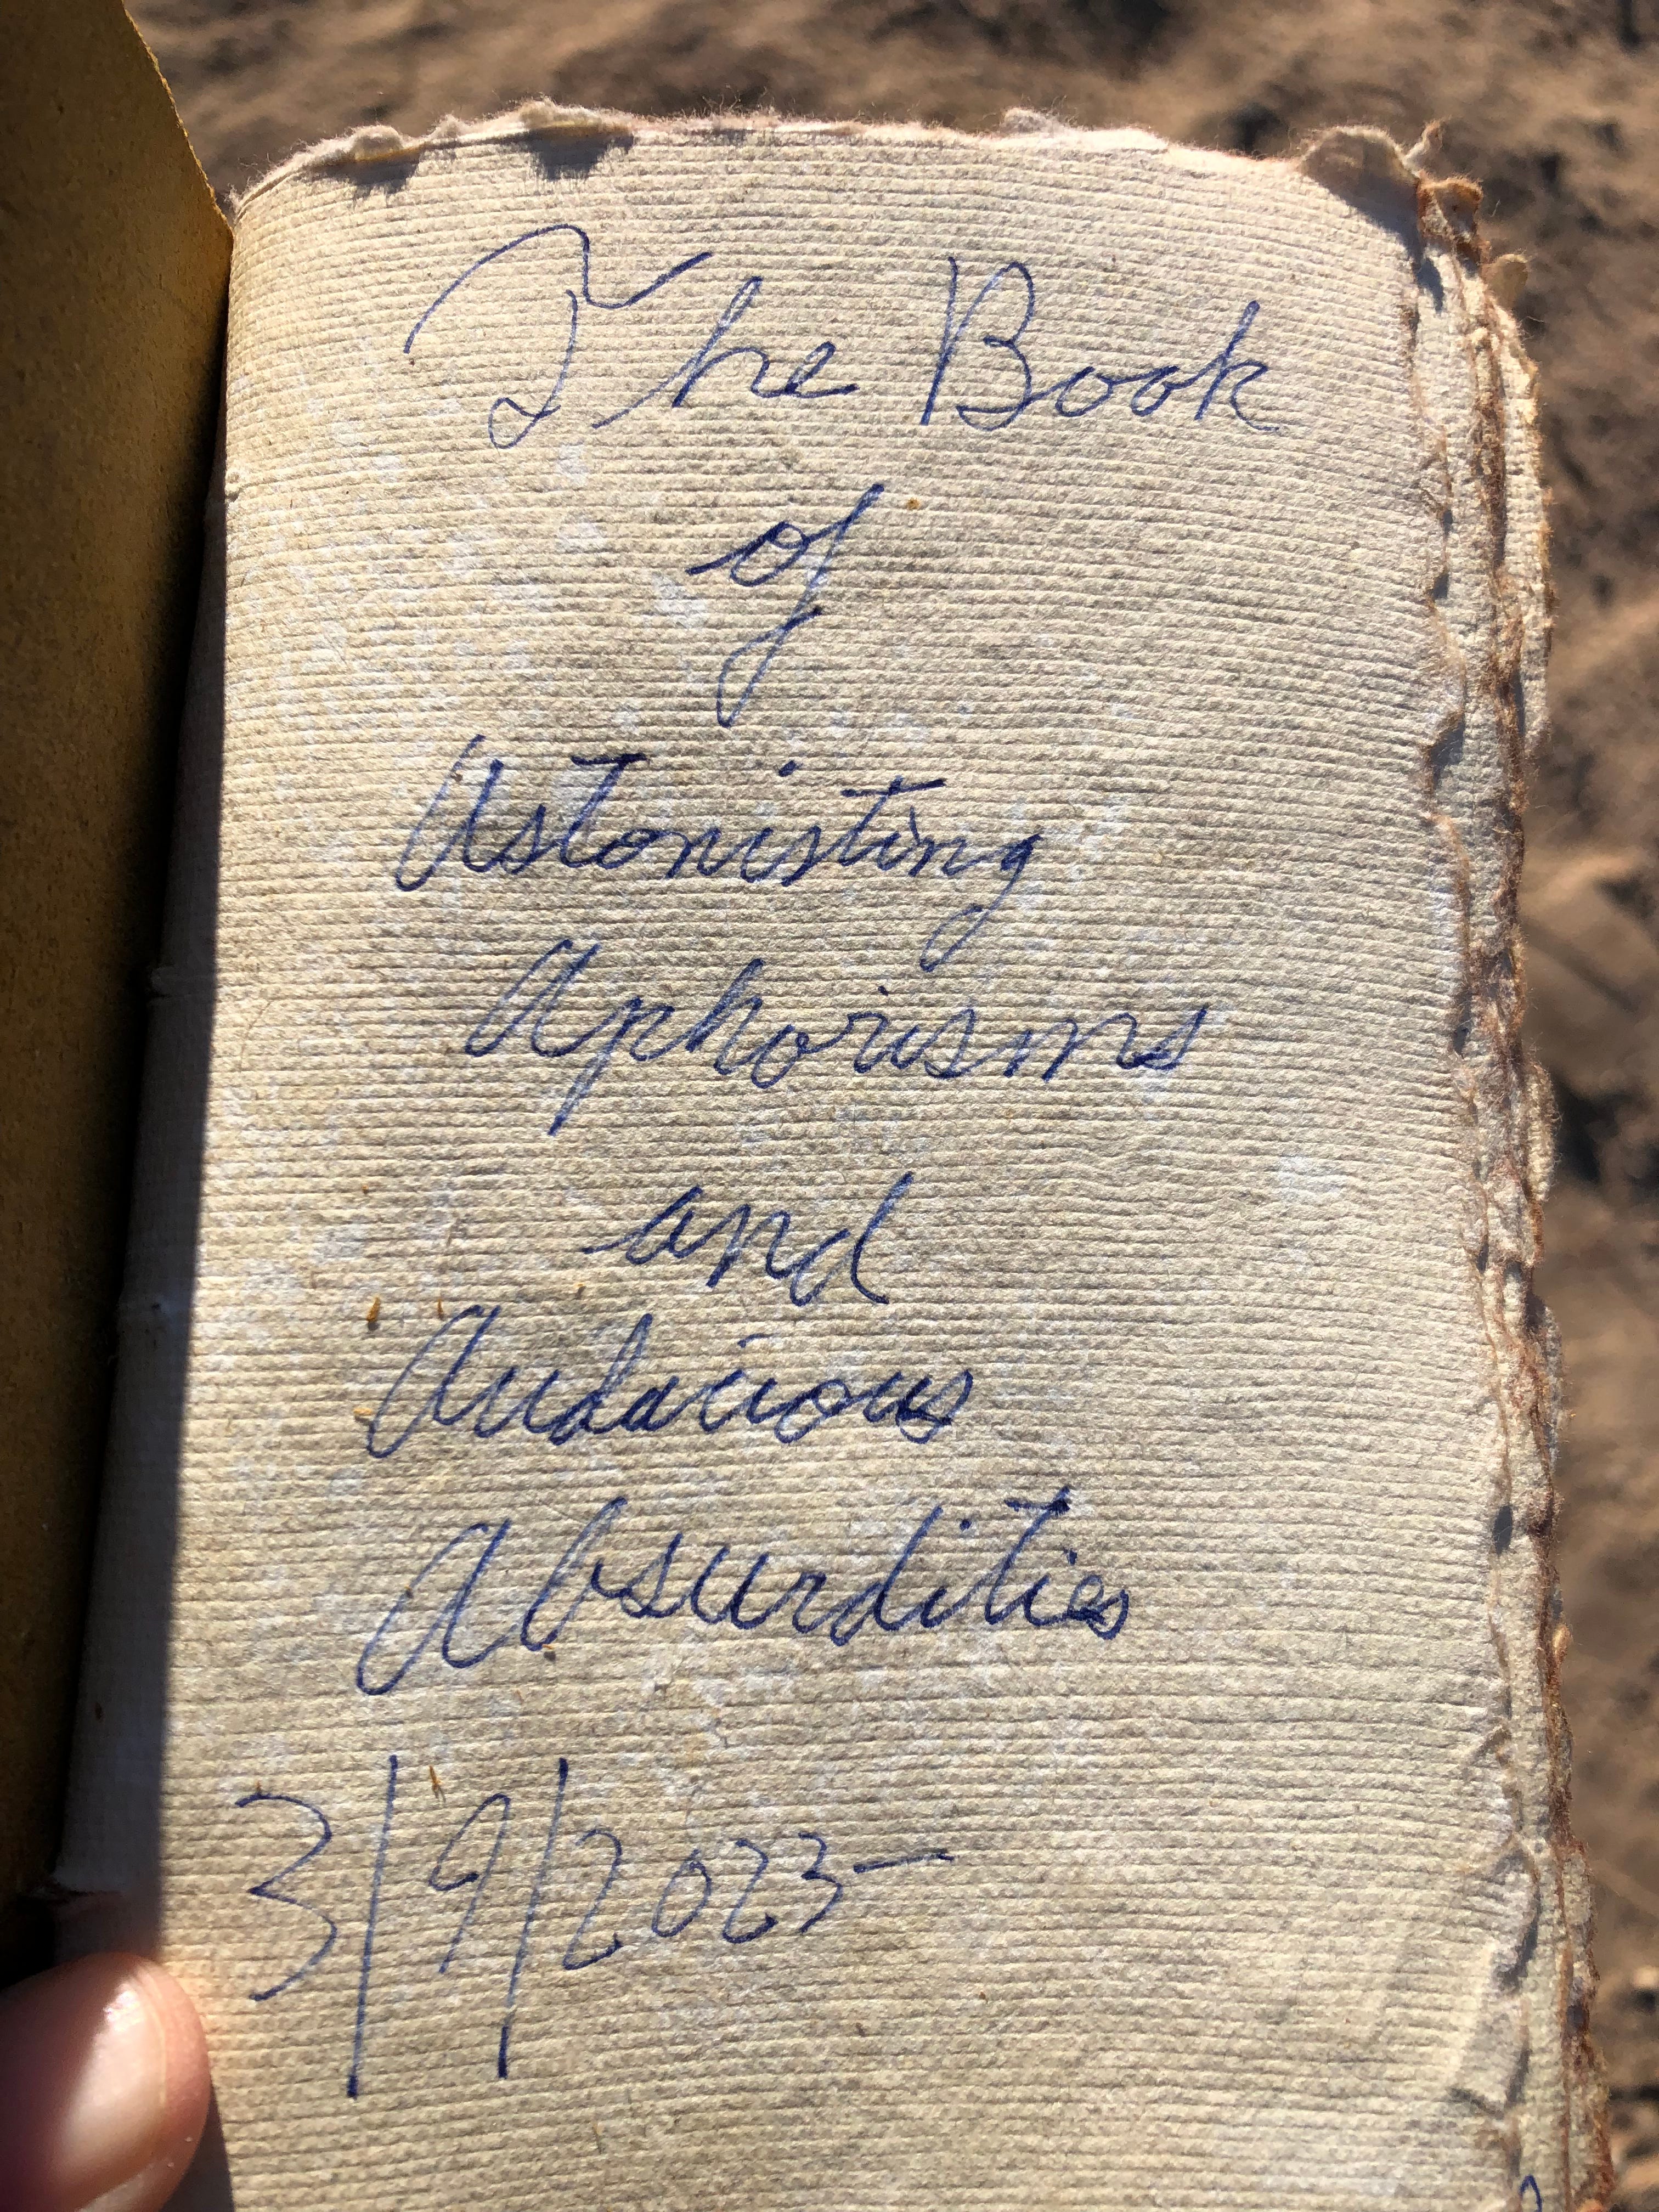 The Book
of
Astonisting
Aphorisms
and
Audacious
Absurdities
3/9/2023-